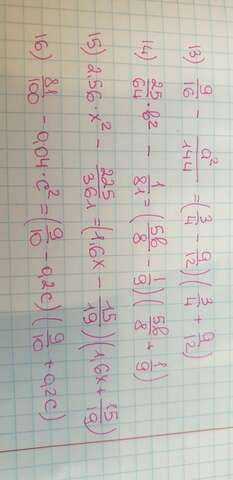 13) 9/16 - a²/144 = (3/4 - a/12)(3/4 + a/12)
14) 25/64 · b² - 1/81 = (5b/8 - 1/9)(5b/8 + 1/9)
15) 2,56 · x² - 225/361 = (1,6x - 15/19)(1,6x + 15/19)
16) 81/100 - 0,04 · c² = (9/10 - 0,2c)(9/10 + 0,2c)